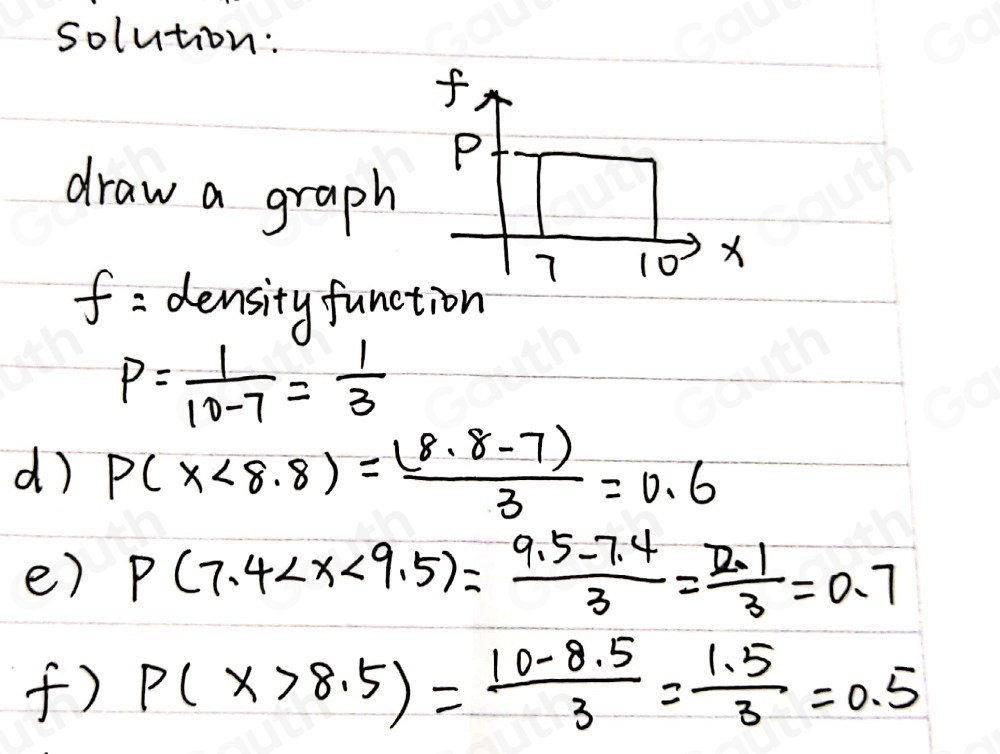 Solution:
f
P
draw a graph
7 10 x
f = density function
P = 1/(10-7) = 1/3
d) P(x<8.8) = (8.8-7)/3 = 0.6
e) P(7.4<x<9.5) = (9.5-7.4)/3 = 2.1/3 = 0.7
f) P(x>8.5) = (10-8.5)/3 = 1.5/3 = 0.5
Gauth